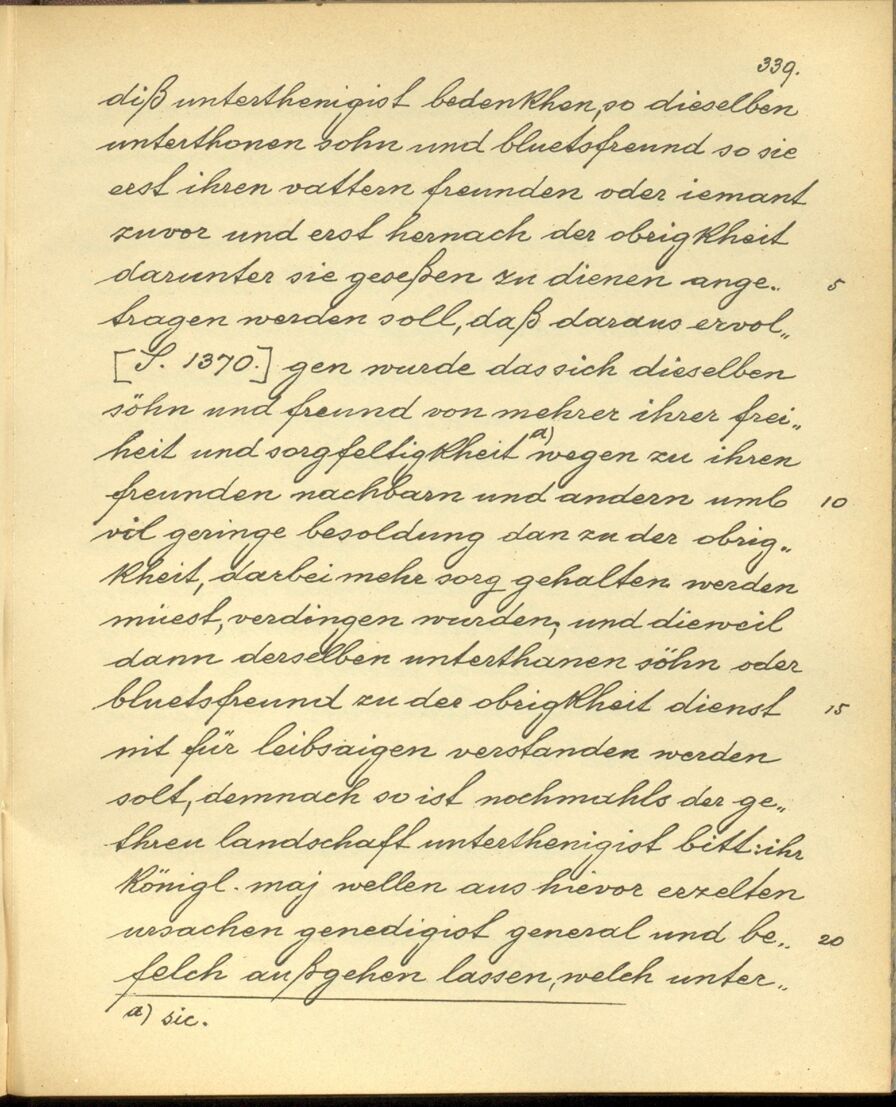 339.
diß unterthenigist bedenkhen, so dieselben
unterthonen sohn und bluetsfreund so sie
erst ihren vattern freunden oder iemant
zuvor und erst hernach der obrigkheit
darunter sie geseßen zu dienen ange„ 5
tragen werden soll, daß daraus ervol„
[S. 1370.] gen wurde das sich dieselben
söhn und freund von mehrer ihrer frei„
heit und sorgfeltigkheit a) wegen zu ihren
freunden nachbarn und andern umb 10
vil geringe besoldung dan zu der obrig„
kheit, darbei mehr sorg gehalten werden
müest, verdingen wurden; und dieweil
dann derselben unterthanen söhn oder
bluetsfreund zu der obrigkheit dienst 15
nit für leibsaigen verstanden werden
solt, demnach so ist nochmahls der ge„
threu landschaft unterthenigist bitt: ihr
königl. maj wellen aus hievor erzelten
ursachen genedigist general und be„ 20
felch außgehen lassen, welch unter„
a) sic.